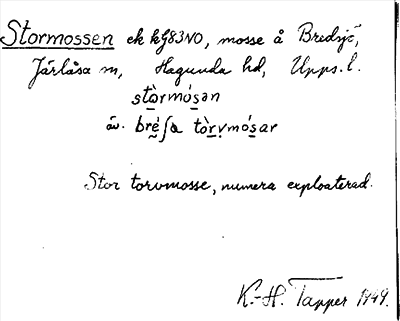 Stormossen ek kJ83NO, mosse å Bredsjö,
Järlåsa sn, Hagunda hd, Upps. l.
stòrmósən
äv. bré̤ʃa tòrvmósar
Stor torvmosse, numera exploaterad.
K.-H. Tapper 1949.